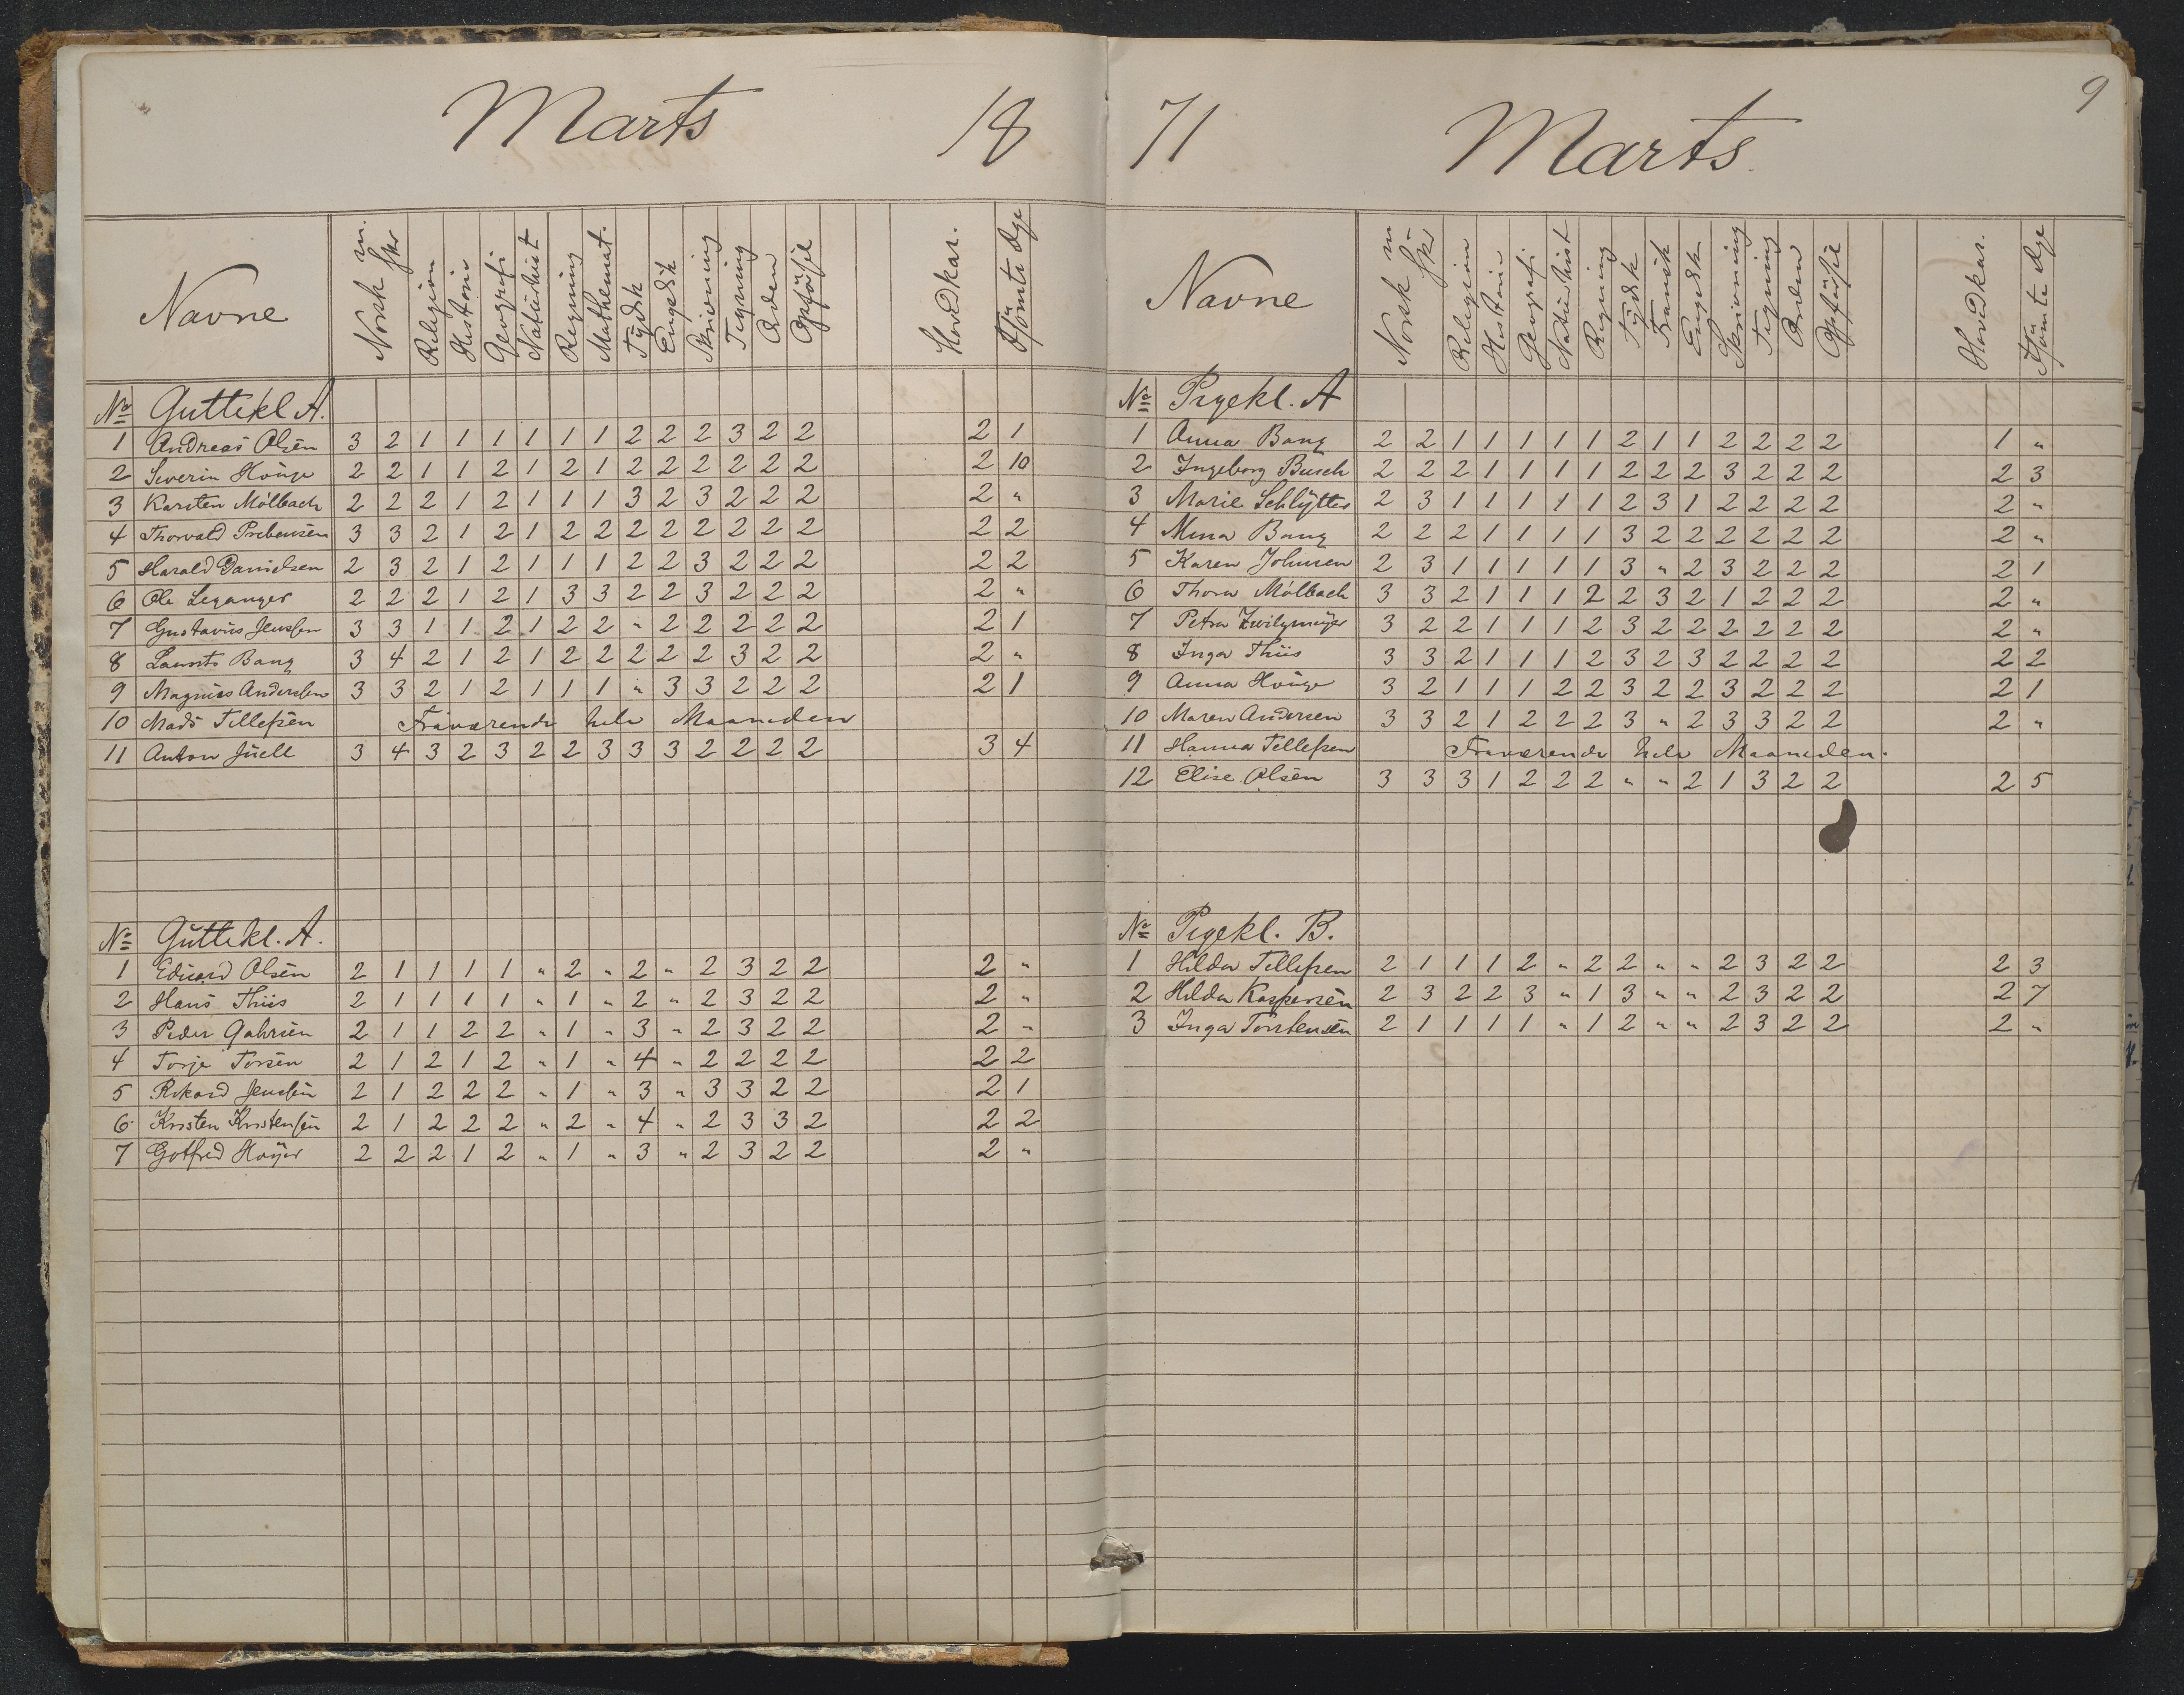 Marts 18
Navne Norsk m. skr Religion Historie Geografi Naturhist Regning Mathemat. Tydsk Engelsk Skrivning Tegning Orden Opførsel Hovedkar. Forsömte dge
No Guttekl A.
1 Andreas Olsen 3 2 1 1 1 1 1 1 2 2 2 3 2 2 2 1
2 Severin Houge 2 2 1 1 2 1 2 1 2 2 2 2 2 2 2 10
3 Karsten Mölbach 2 2 2 1 2 1 1 1 3 2 3 2 2 2 2 "
4 Thorvald Prebensen 3 3 2 1 2 1 2 2 2 2 2 2 2 2 2 2
5 Harald Danielsen 2 3 2 1 2 1 1 1 2 2 3 2 2 2 2 2
6 Ole Leganger 2 2 2 1 2 1 3 3 2 2 3 2 2 2 2 "
7 Gustavus Jenssen 3 3 1 1 2 1 2 2 " 2 2 2 2 2 2 1
8 Laurits Bang 3 4 2 1 2 1 2 2 2 2 2 3 2 2 2 "
9 Magnus Anderssen 3 3 2 1 2 1 1 1 " 3 3 2 2 2 2 1
10 Mads Tellefsen Fraværende hele Maaneden
11 Anton Juell 3 4 3 2 3 2 2 3 3 3 2 2 2 2 3 4
No Guttekl. A.
1 Eduard Olsen 2 1 1 1 1 " 2 " 2 " 2 3 2 2 2 "
2 Hans Thiis 2 1 1 1 1 " 1 " 2 " 2 3 2 2 2 "
3 Peder Gabrsen 2 1 1 2 2 " 1 " 3 " 2 3 2 2 2 "
4 Torje Torsen 2 1 2 1 2 " 1 " 4 " 2 2 2 2 2 2
5 Rikard Jenssen 2 1 2 2 2 " 1 " 3 " 3 3 2 2 2 1
6 Kristen Kristensen 2 1 2 2 2 " 2 " 4 " 2 3 3 2 2 2
7 Gotfred Höyer 2 2 2 1 2 " 1 " 3 " 2 3 2 2 2 "
71 Marts. 9
Navne Norsk m skr Religion Historie Geografi Naturhist Regning Tydsk Fransk Engelsk Skrivning Tegning Orden Opførsel Hovedkar. Forsömte dge
No Pigekl. A
1 Anna Bang 2 2 1 1 1 1 1 2 1 1 2 2 2 2 1 "
2 Ingeborg Busch 2 2 2 1 1 1 1 2 2 2 3 2 2 2 2 3
3 Marie Schlytter 2 3 1 1 1 1 1 2 3 1 2 2 2 2 2 "
4 Mina Bang 2 2 2 1 1 1 1 3 2 2 2 2 2 2 2 "
5 Karen Johnsen 2 3 1 1 1 1 1 3 " 2 3 2 2 2 2 1
6 Thora Mölbach 3 3 2 1 1 1 2 2 3 2 1 2 2 2 2 "
7 Petra Zwilgmeyer 3 2 2 1 1 1 2 3 2 2 2 2 2 2 2 "
8 Inga Thiis 3 3 2 1 1 1 2 3 2 3 2 2 2 2 2 2
9 Anna Houge 3 2 1 1 1 2 2 3 2 2 3 2 2 2 2 1
10 Maren Andersen 3 3 2 1 2 2 2 3 " 2 3 3 2 2 2 "
11 Hanna Tellefsen Fraværende hele Maaneden.
12 Elise Olsen 3 3 3 1 2 2 2 " " 2 1 3 2 2 2 5
No Pigekl. B.
1 Hilda Tellefsen 2 1 1 1 2 " 2 2 " " 2 3 2 2 2 3
2 Hilda Kaspersen 2 3 2 2 3 " 1 3 " " 2 3 2 2 2 7
3 Inga Torstensen 2 1 1 1 1 " 1 2 " " 2 3 2 2 2 "